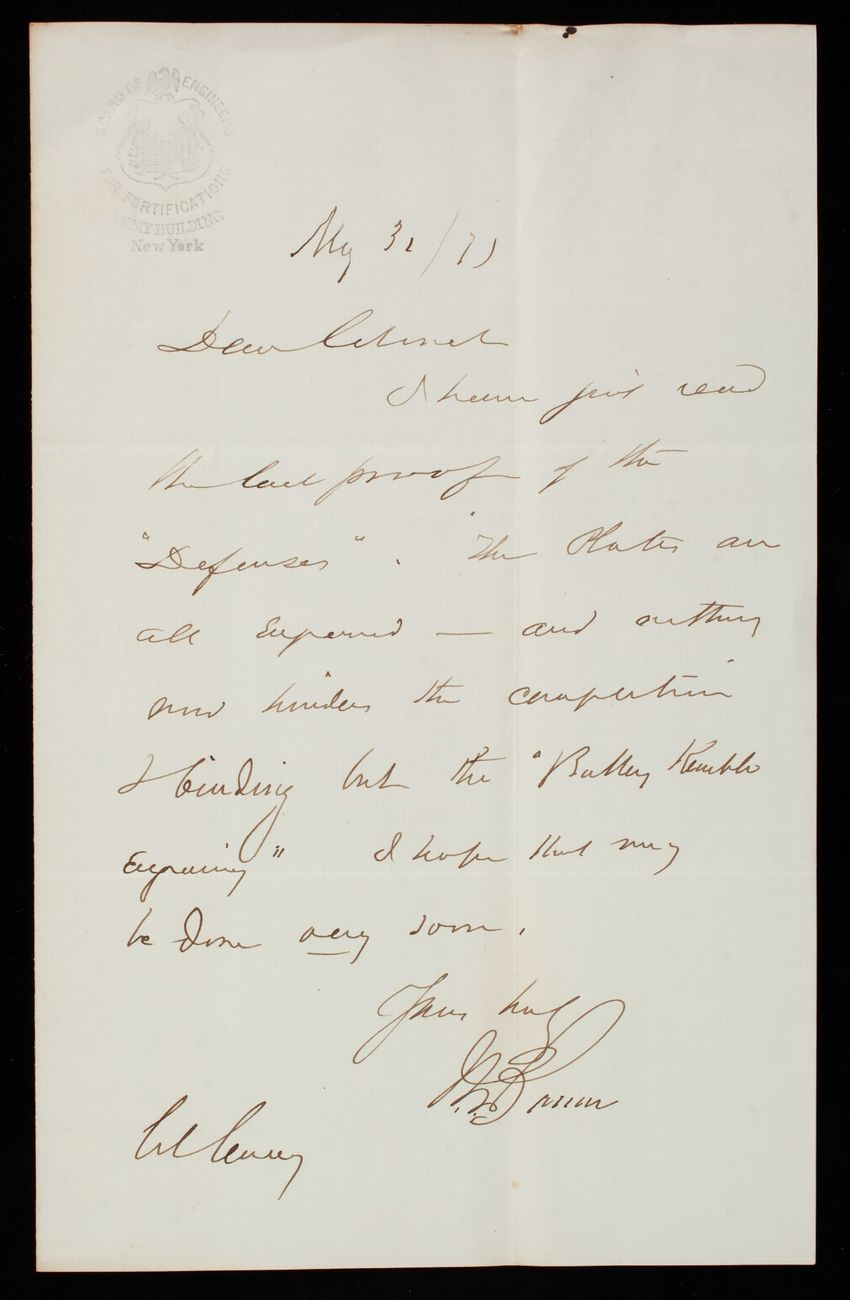 BOARD OF ENGINEERS
FOR FORTIFICATIONS
ARMY BUILDING
New York
My 31/71
Dear Colonel
I have just read
the last proof of the
"Defenses". The Plates are
all Engraved — and nothing
now hinders the completion
& binding but the "Battery Kemble
Engraving" I hope that may
be done very soon.
Yours truly
J. G. Barnard
Col Casey